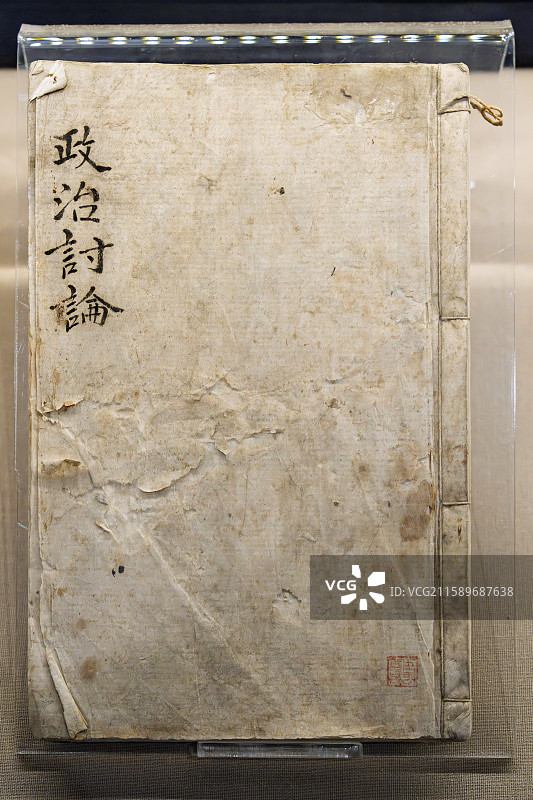 政治討論
VCG
ID:VCG211589687638